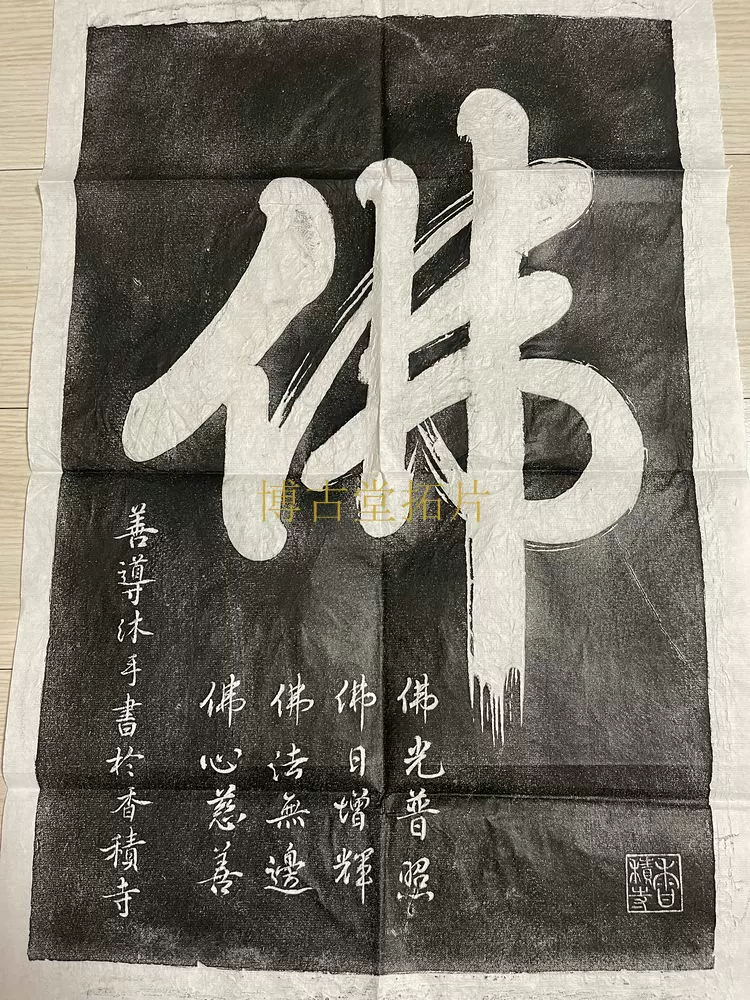 佛
佛光普照
佛日增輝
佛法無邊
佛心慈善
善導沐手書於香積寺
香積寺
博古堂拓片